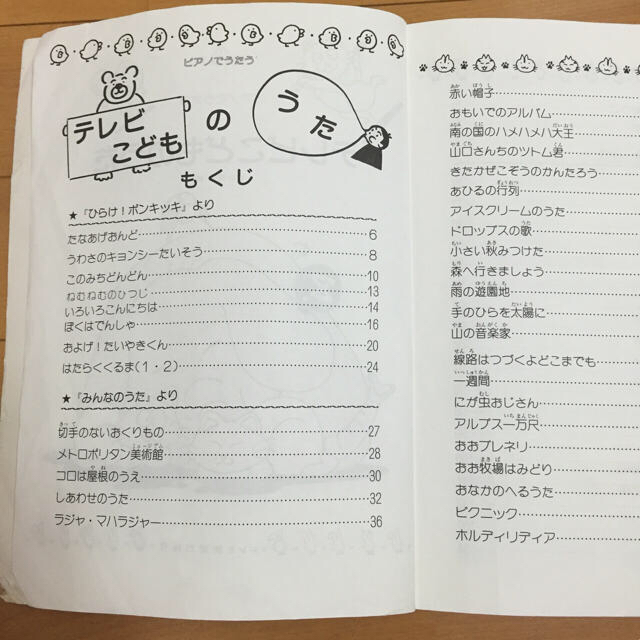 ピアノでうたう
テレビ
こども
の
うた
もくじ
★『ひらけ！ポンキッキ』より
たなあげおんど……6
うわさのキョンシーたいそう……8
このみちどんどん……10
ねむねむのひつじ……13
いろいろこんにちは……14
ぼくはでんしゃ……16
およげ！たいやきくん……20
はたらくくるま(1・2)……24
★『みんなのうた』より
切手のないおくりもの……27
メトロポリタン美術館……28
コロは屋根のうえ……30
しあわせのうた……32
ラジャ・マハラジャー……36
赤い帽子……
おもいでのアルバム……
南の国のハメハメハ大王……
山口さんちのツトム君……
きたかぜこぞうのかんたろう……
あひるの行列……
アイスクリームのうた……
ドロップスの歌……
小さい秋みつけた……
森へ行きましょう……
雨の遊園地……
手のひらを太陽に……
山の音楽家……
線路はつづくよどこまでも……
一週間……
にが虫おじさん……
アルプス一万尺……
おおブレネリ……
おお牧場はみどり……
おなかのへるうた……
ピクニック……
ホルディリディア……